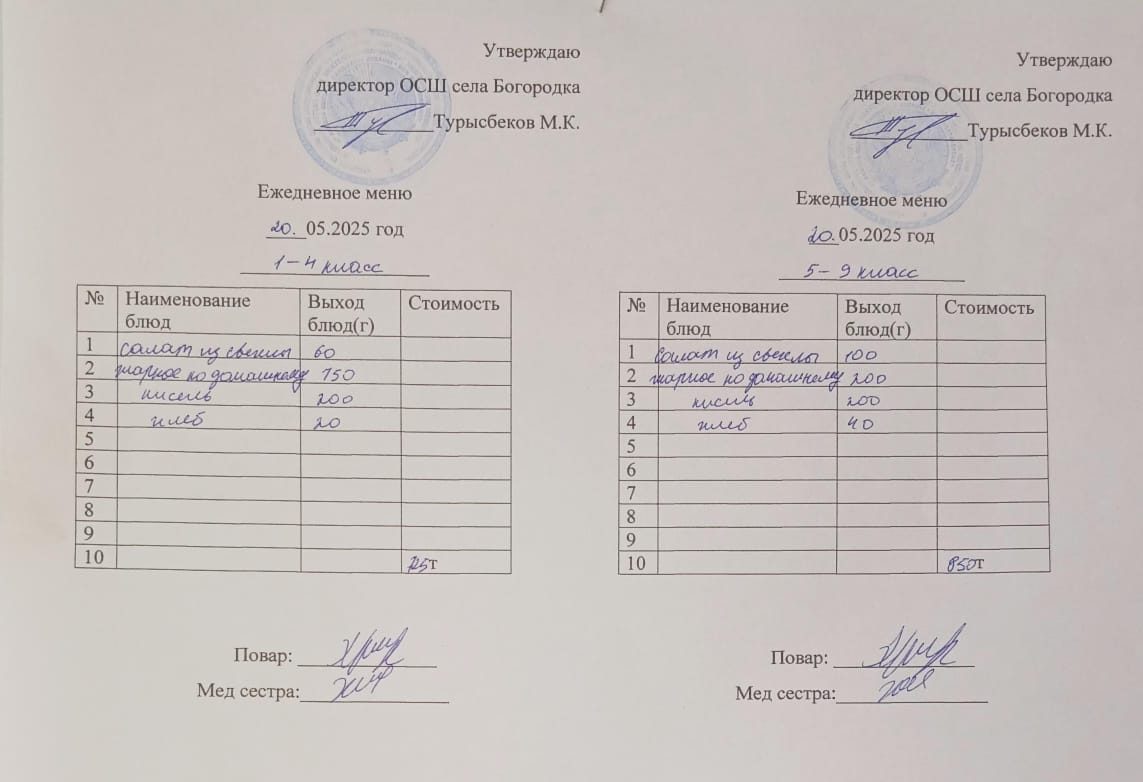 Утверждаю
директор ОСШ села Богородка
Турысбеков М.К.
Ежедневное меню
20.05.2025 год
1-4 класс
№ Наименование блюд Выход блюд(г) Стоимость
1 салат из свеклы 60
2 жаркое по домашнему 150
3 кисель 200
4 хлеб 20
5
6
7
8
9
10 т
Повар:
Мед сестра:
Утверждаю
директор ОСШ села Богородка
Турысбеков М.К.
Ежедневное меню
20.05.2025 год
5-9 класс
№ Наименование блюд Выход блюд(г) Стоимость
1 салат из свеклы 100
2 жаркое по домашнему 200
3 кисель 200
4 хлеб 40
5
6
7
8
9
10 850т
Повар:
Мед сестра: